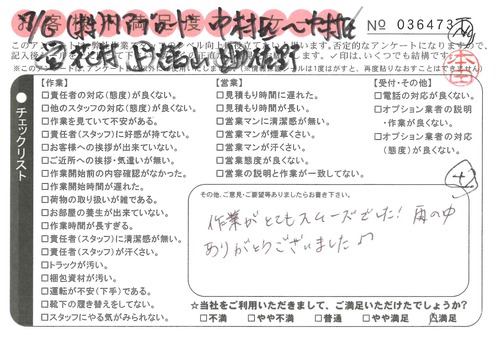 お客様満足度
No 036473
このアンケートは
記入後
否定的なアンケートになりますので、
✓印は、いくつでも結構です。
チェックリスト
【作業】
□責任者の対応(態度)が良くない。
□他のスタッフの対応(態度)が良くない。
□作業を見ていて不安がある。
□責任者(スタッフ)に好感が持てない。
□お客様への挨拶が出来ていない。
□ご近所への挨拶・気遣いが無い。
□作業開始前の内容確認がなかった。
□作業開始時間が遅れた。
□荷物の取り扱いが雑である。
□お部屋の養生が出来ていない。
□作業時間が長すぎる。
□責任者(スタッフ)に清潔感が無い。
□責任者(スタッフ)が汗くさい。
□トラックが汚い。
□梱包資材が汚い。
□運転が不安(下手)である。
□靴下の履き替えをしてない。
□スタッフにやる気がみられない。
【営業】
□見積もり時間に遅れた。
□見積もり時間が長い。
□営業マンに清潔感が無い。
□営業マンが煙草くさい。
□営業マンが汗くさい。
□営業態度が良くない。
□営業の説明と作業が一致してない。
【受付・その他】
□電話の対応が良くない。
□オプション業者の説明
・作業が良くない。
□オプション業者の対応
(態度)が良くない。
その他、ご意見・ご要望等ありましたらお書き下さい。
作業がとてもスムーズでした! 雨の中
ありがとうございました♪
☆当社をご利用いただきまして、ご満足いただけたでしょうか?
□不満 □やや不満 □普通 □やや満足 ☑満足